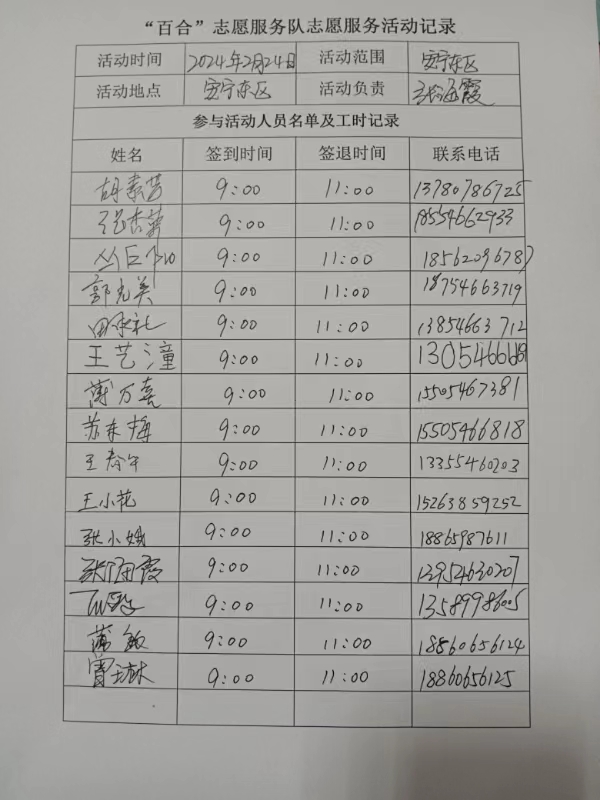 “百合”志愿服务队志愿服务活动记录
活动时间 2024年2月24日 活动范围 安宁东区
活动地点 安宁东区 活动负责 张海霞
参与活动人员名单及工时记录
姓名 签到时间 签退时间 联系电话
胡素芳 9:00 11:00 13780786725
9:00 11:00 18554662933
9:00 11:00 18562096787
郭光美 9:00 11:00 18754663719
田承礼 9:00 11:00 13854663712
王艺潼 9:00 11:00
薄万喜 9:00 11:00 15505467381
苏东梅 9:00 11:00 15505466818
王春午 9:00 11:00 13355460203
王小花 9:00 11:00 15263859252
张小娥 9:00 11:00 18865987611
张海霞 9:00 11:00
9:00 11:00 13589986005
蒲敏 9:00 11:00 18860656124
曹玉林 9:00 11:00 18860656125